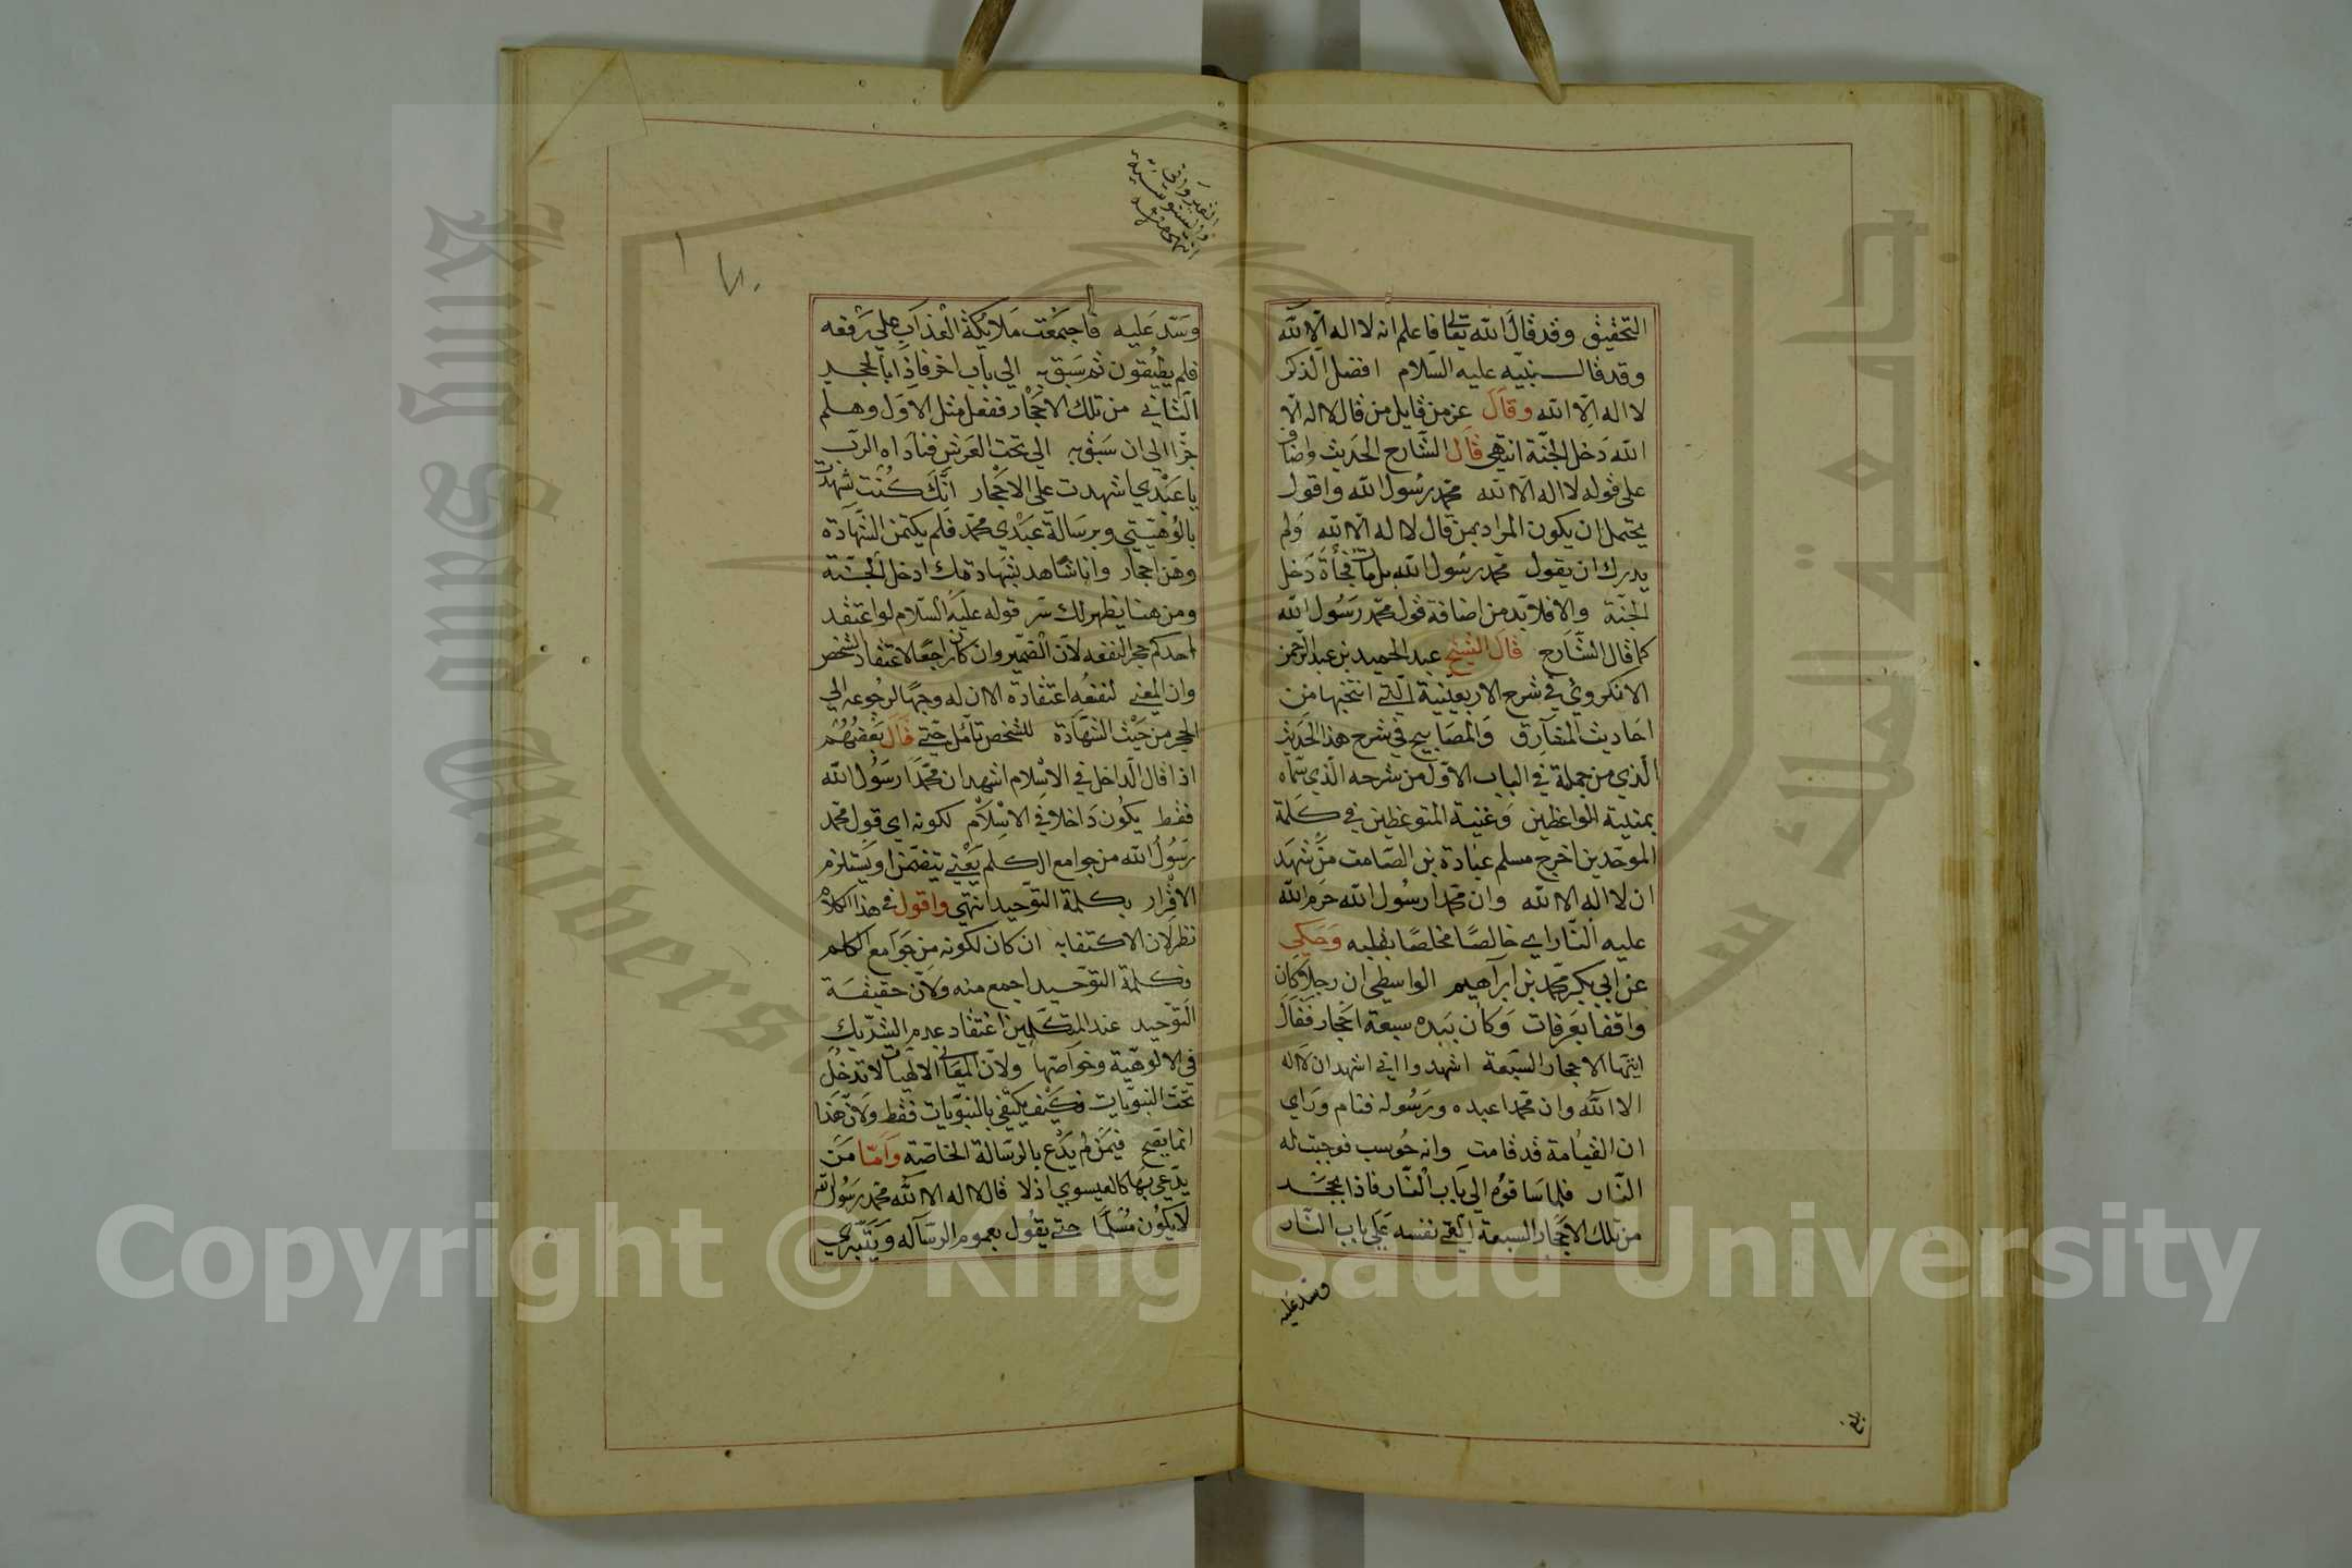 التحقيق وقد قال الله تعالى فاعلم انه لا اله الا الله
وقد قال نبيه عليه السلام افضل الذكر
لا اله الا الله وقال عز من قايل من قال لا اله الا
الله دخل الجنة انتهى قال الشارح الحديث واضاف
على قوله لا اله الا الله محمد رسول الله واقول
يحتمل ان يكون المراد بمن قال لا اله الا الله ولم
يدرك ان يقول محمد رسول الله بل مات فجأة دخل
الجنة والا فلا بد من اضافة قول محمد رسول الله
كما قال الشارح قال الشيخ عبد الحميد بن عبد الرحمن
الانكروي في شرح الاربعينية التي انتخبها من
احاديث المشارق والمصابيح في شرح هذا الحديث
الذي من جملة في الباب الاول من شرحه الذي سماه
بمنية الواعظين وغنية المتوعظين في كلمة
الموحدين اخرج مسلم عبادة بن الصامت من شهد
ان لا اله الا الله وان محمدا رسول الله حرم الله
عليه النار اي خالصا مخلصا بقلبه وحكي
عن ابي بكر محمد بن ابراهيم الواسطي ان رجلا كان
واقفا بعرفات وكان بيده سبعة احجار فقال
ايتها الاحجار السبعة اشهدوا اني اشهد ان لا اله
الا الله وان محمدا عبده ورسوله فنام وراي
ان القيامة قد قامت وانه حوسب فوجبت له
النار فلما ساقوه الي باب النار فاذا بحجر
من تلك الاحجار السبعة القي نفسه علي باب النار
وسد عليه
بلغ
وسد عليه فاجتمعت ملايكة العذاب علي رفعه
فلم يطيقون ثم سبق به الي باب اخر فاذا بالحجر
الثاني من تلك الاحجار ففعل مثل الاول وهلم
جرا الي ان سبق به الي تحت العرش فناداه الرب
يا عبدي اشهدت علي الاحجار انك كنت شهدت
بالوهيتي وبرسالة عبدي محمد فلم يكتمن الشهادة
وهن احجار وانا شاهد بشهادتك ادخل الجنة
ومن هنا يظهر لك سر قوله عليه السلام لو اعتقد
احدكم حجرا لنفعه لان الضمير وان كان راجعا لاعتقاد الشخص
وان المعني لنفعه اعتقاده الا ان له وجها لرجوعه الي
الحجر من حيث الشهادة للشخص تامل حتي قال بعضهم
اذا قال الداخل في الاسلام اشهد ان محمدا رسول الله
فقط يكون داخلا في الاسلام لكونه اي قول محمد
رسول الله من جوامع الكلم يعني يتضمن او يستلزم
الاقرار بكلمة التوحيد انتهي واقول في هذا الكلام
نظر لان الاكتفا به ان كان لكونه من جوامع الكلم
فكلمة التوحيد اجمع منه ولان حقيقة
التوحيد عند المتكلمين اعتقاد عدم الشريك
في الالوهية وخواصها ولان المعاني الالهيات لا تدخل
تحت النبويات فكيف يكتفي بالنبويات فقط ولان هذا
انما يصح فيمن لم يدع بالرسالة الخاصة واما من
يدعي بها كالعيسوي اذ لا قال لا اله الا الله محمد رسول الله
لا يكون مسلما حتي يقول بعموم الرسالة ويتبري
King Saud University
جامعة الملك سعود
Copyright © King Saud University